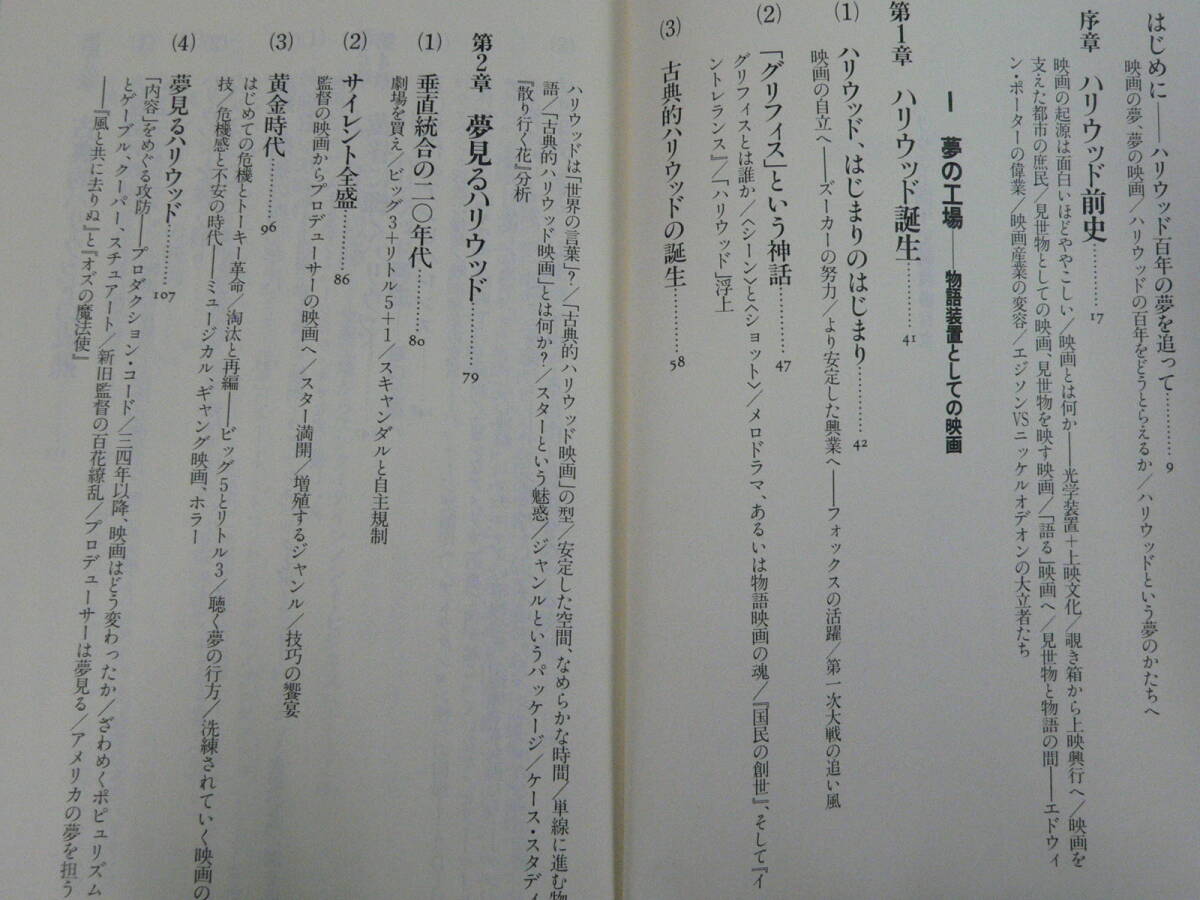 はじめに――ハリウッド百年の夢を追って…………9
映画の夢、夢の映画/ハリウッドの百年をどうとらえるか/ハリウッドという夢のかたちへ
序章 ハリウッド前史…………17
映画の起源は面白いほどややこしい/映画とは何か――光学装置+上映文化/覗き箱から上映興行へ/映画を
支えた都市の庶民/見世物としての映画、見世物を映す映画/「語る」映画へ/見世物と物語の間――エドウィ
ン・ポーターの偉業/映画産業の変容/エジソンVSニッケルオデオンの大立者たち
I 夢の工場――物語装置としての映画
第1章 ハリウッド誕生…………41
(1) ハリウッド、はじまりのはじまり…………42
映画の自立へ――ズーカーの努力/より安定した興業へ――フォックスの活躍/第一次大戦の追い風
(2) 「グリフィス」という神話…………47
グリフィスとは誰か/〈シーン〉と〈ショット〉/メロドラマ、あるいは物語映画の魂/『国民の創世』、そして『イ
ントレランス』/「ハリウッド」浮上
(3) 古典的ハリウッドの誕生…………58
ハリウッドは「世界の言葉」?/「古典的ハリウッド映画」の型/安定した空間、なめらかな時間/単線に進む物
語/「古典的ハリウッド映画」とは何か?/スターという魅惑/ジャンルというパッケージ/ケース・スタディ
『散り行く花』分析
第2章 夢見るハリウッド…………79
(1) 垂直統合の二〇年代…………80
劇場を買え/ビッグ3+リトル5+1/スキャンダルと自主規制
(2) サイレント全盛…………86
監督の映画からプロデューサーの映画へ/スター満開/増殖するジャンル/技巧の饗宴
(3) 黄金時代…………96
はじめての危機とトーキー革命/淘汰と再編――ビッグ5とリトル3/聴く夢の行方/洗練されていく映画の
技/危機感と不安の時代――ミュージカル、ギャング映画、ホラー
(4) 夢見るハリウッド…………107
「内容」をめぐる攻防――プロダクション・コード/三四年以降、映画はどう変わったか/ざわめくポピュリズム
とゲーブル、クーパー、スチュアート/新旧監督の百花繚乱/プロデューサーは夢見る/アメリカの夢を担う
――『風と共に去りぬ』と『オズの魔法使』